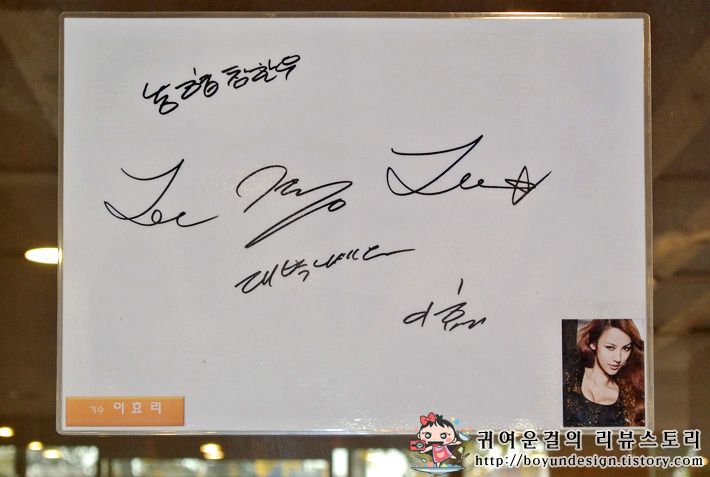 농협창한우
대박나세요
이효리
가수 이효리
귀여운걸의 리뷰스토리
http://boyundesign.tistory.com/